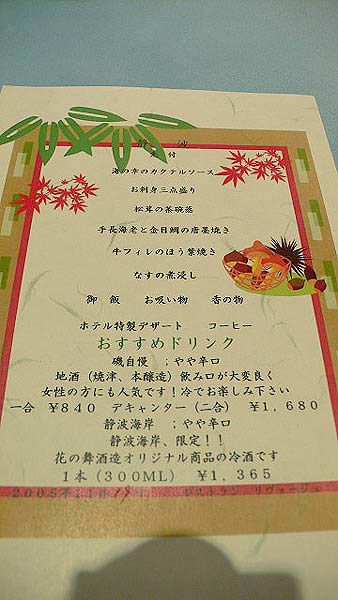 静波
先付
海の幸のカクテルソース
お刺身三点盛り
松茸の茶碗蒸
手長海老と金目鯛の唐墨焼き
牛フィレのほう葉焼き
なすの煮浸し
御飯 お吸い物 香の物
ホテル特製デザート コーヒー
おすすめドリンク
磯自慢 ;やや辛口
地酒(焼津、本醸造)飲み口が大変良く
女性の方にも人気です!冷でお楽しみ下さい
一合 ¥840 デキャンター(二合) ¥1,680
静波海岸 ;やや辛口
静波海岸、限定!!
花の舞酒造オリジナル商品の冷酒です
1本(300ML) ¥1,365
レストラン リヴァージュ